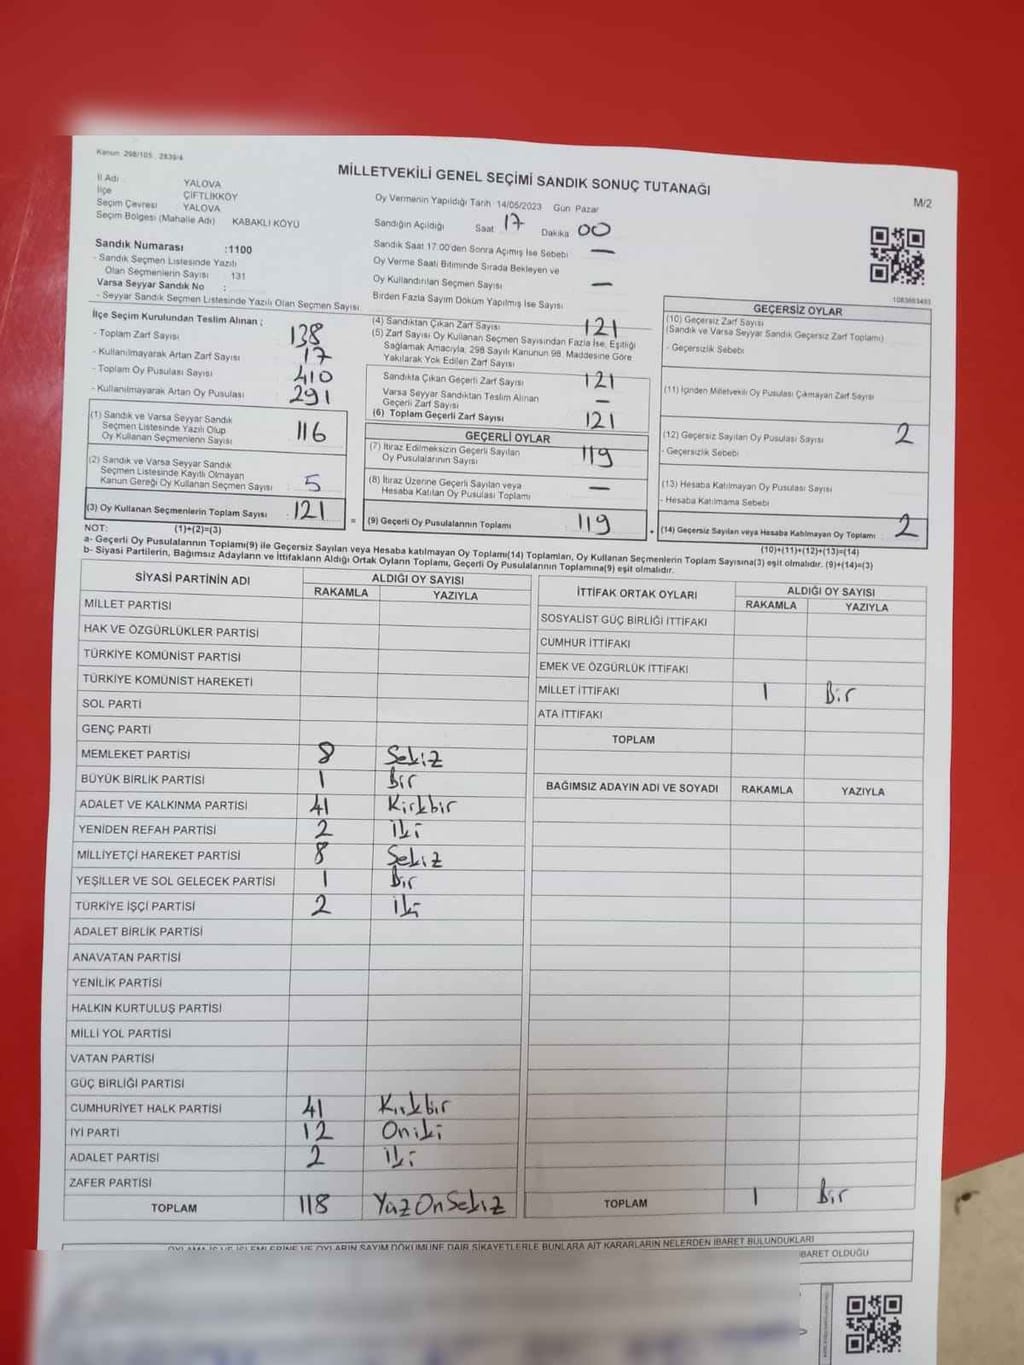 Kanun 298/105, 2839/4
MİLLETVEKİLİ GENEL SEÇİMİ SANDIK SONUÇ TUTANAĞI
M/2
İl Adı YALOVA
İlçe ÇİFTLİKKÖY
Seçim Çevresi YALOVA
Seçim Bölgesi (Mahalle Adı) KABAKLI KÖYÜ
Oy Vermenin Yapıldığı Tarih 14/05/2023 Gün Pazar
Sandığın Açıldığı Saat 17 Dakika 00
Sandık Saat 17:00'den Sonra Açımış İse Sebebi —
Oy Verme Saati Bitiminde Sırada Bekleyen ve
Oy Kullandırılan Seçmen Sayısı —
Birden Fazla Sayım Döküm Yapılmış İse Sayısı
Sandık Numarası :1100
- Sandık Seçmen Listesinde Yazılı
Olan Seçmenlerin Sayısı 131
Varsa Seyyar Sandık No :
- Seyyar Sandık Seçmen Listesinde Yazılı Olan Seçmen Sayısı
İlçe Seçim Kurulundan Teslim Alınan ;
- Toplam Zarf Sayısı 138
- Kullanılmayarak Artan Zarf Sayısı 17
- Toplam Oy Pusulası Sayısı 410
- Kullanılmayarak Artan Oy Pusulası 291
(1) Sandık ve Varsa Seyyar Sandık
Seçmen Listesinde Yazılı Olup
Oy Kullanan Seçmenlerin Sayısı 116
(2) Sandık ve Varsa Seyyar Sandık
Seçmen Listesinde Kayıtlı Olmayan
Kanun Gereği Oy Kullanan Seçmen Sayısı 5
(3) Oy Kullanan Seçmenlerin Toplam Sayısı 121
(4) Sandıktan Çıkan Zarf Sayısı 121
(5) Zarf Sayısı Oy Kullanan Seçmen Sayısından Fazla İse, Eşitliği
Sağlamak Amacıyla, 298 Sayılı Kanunun 98. Maddesine Göre
Yakılarak Yok Edilen Zarf Sayısı
Sandıkta Çıkan Geçerli Zarf Sayısı 121
Varsa Seyyar Sandıktan Teslim Alınan
Geçerli Zarf Sayısı —
(6) Toplam Geçerli Zarf Sayısı 121
GEÇERLİ OYLAR
(7) İtiraz Edilmeksizin Geçerli Sayılan
Oy Pusulalarının Sayısı 119
(8) İtiraz Üzerine Geçerli Sayılan veya
Hesaba Katılan Oy Pusulası Toplamı —
= (9) Geçerli Oy Pusulalarının Toplamı 119
1083883493
GEÇERSİZ OYLAR
(10) Geçersiz Zarf Sayısı
(Sandık ve Varsa Seyyar Sandık Geçersiz Zarf Toplamı)
- Geçersizlik Sebebi
(11) İçinden Milletvekili Oy Pusulası Çıkmayan Zarf Sayısı
(12) Geçersiz Sayılan Oy Pusulası Sayısı 2
- Geçersizlik Sebebi
(13) Hesaba Katılmayan Oy Pusulası Sayısı
- Hesaba Katılmama Sebebi
(14) Geçersiz Sayılan veya Hesaba Katılmayan Oy Toplamı 2
NOT: (1)+(2)=(3)
(10)+(11)+(12)+(13)=(14)
a- Geçerli Oy Pusulalarının Toplamı(9) ile Geçersiz Sayılan veya Hesaba katılmayan Oy Toplamı(14) Toplamları, Oy Kullanan Seçmenlerin Toplam Sayısına(3) eşit olmalıdır. (9)+(14)=(3)
b- Siyasi Partilerin, Bağımsız Adayların ve İttifakların Aldığı Ortak Oyların Toplamı, Geçerli Oy Pusulalarının Toplamına(9) eşit olmalıdır.
SİYASİ PARTİNİN ADI ALDIĞI OY SAYISI
RAKAMLA YAZIYLA
MİLLET PARTİSİ
HAK VE ÖZGÜRLÜKLER PARTİSİ
TÜRKİYE KOMÜNİST PARTİSİ
TÜRKİYE KOMÜNİST HAREKETİ
SOL PARTİ
GENÇ PARTİ
MEMLEKET PARTİSİ 8 Sekiz
BÜYÜK BİRLİK PARTİSİ 1 Bir
ADALET VE KALKINMA PARTİSİ 41 Kirkbir
YENİDEN REFAH PARTİSİ 2 iki
MİLLİYETÇİ HAREKET PARTİSİ 8 Sekiz
YEŞİLLER VE SOL GELECEK PARTİSİ 1 Bir
TÜRKİYE İŞÇİ PARTİSİ 2 iki
ADALET BİRLİK PARTİSİ
ANAVATAN PARTİSİ
YENİLİK PARTİSİ
HALKIN KURTULUŞ PARTİSİ
MİLLİ YOL PARTİSİ
VATAN PARTİSİ
GÜÇ BİRLİĞİ PARTİSİ
CUMHURİYET HALK PARTİSİ 41 Kırkbir
İYİ PARTİ 12 Oniki
ADALET PARTİSİ 2 iki
ZAFER PARTİSİ
TOPLAM 118 Yaz On Sekiz
İTTİFAK ORTAK OYLARI ALDIĞI OY SAYISI
RAKAMLA YAZIYLA
SOSYALİST GÜÇ BİRLİĞİ İTTİFAKI
CUMHUR İTTİFAKI
EMEK VE ÖZGÜRLÜK İTTİFAKI
MİLLET İTTİFAKI 1 Bir
ATA İTTİFAKI
TOPLAM
BAĞIMSIZ ADAYIN ADI VE SOYADI RAKAMLA YAZIYLA
TOPLAM 1 Bir
OYLAMA İŞ VE İŞLEMLERİNE VE OYLARIN SAYIM DÖKÜMÜNE DAİR ŞİKAYETLERLE BUNLARA AİT KARARLARIN NELERDEN İBARET BULUNDUKLARI
İBARET OLDUĞU